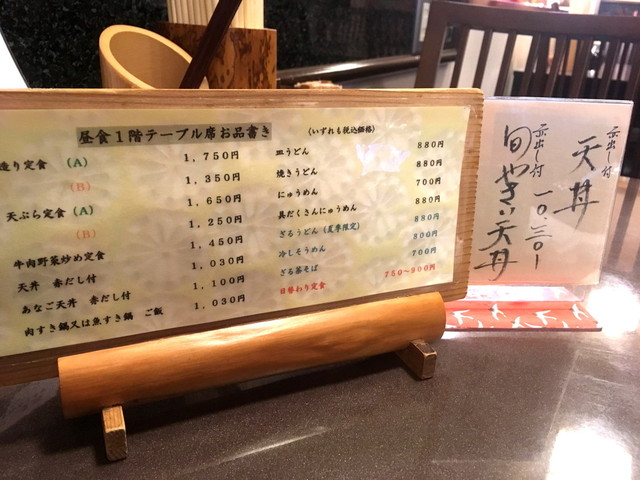 昼食1階テーブル席お品書き
(いずれも税込価格)
造り定食 (A) 1,750円
(B) 1,350円
天ぷら定食 (A) 1,650円
(B) 1,250円
牛肉野菜炒め定食 1,450円
天丼 赤だし付 1,030円
あなご天丼 赤だし付 1,100円
肉すき鍋又は魚すき鍋 ご飯 1,030円
皿うどん 880円
焼きうどん 880円
にゅうめん 700円
具だくさんにゅうめん 880円
ざるうどん (夏季限定) 880円
冷しそうめん 800円
ざる茶そば 700円
日替わり定食 750~900円
赤出し付
天丼
赤出し付
一〇三〇ー
旬やさい天丼